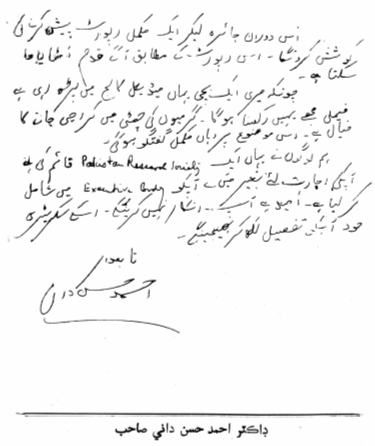 اس دوران جائزہ لیکر ایک مکمل رپورٹ پیش کرنے کی
کوشش کرونگا۔ اس رپورٹ کے مطابق آگے قدم اٹھایا جا
سکتا ہے۔
چونکہ میری ایک بچی یہاں میڈیکل کالج میں پڑھ رہی ہے
فیملی مجھے یہیں رکھنا ہوگا۔ گرمیوں کی چھٹی میں کراچی جانے کا
خیال ہے۔ اسی موضوع پر وہاں مکمل گفتگو ہوگی۔
ہم لوگوں نے یہاں ایک Pakistan Research Society قائم کی ہے
آپکی اجازت لئے بغیر میں نے آپکو Executive Body میں شامل
کر لیا ہے۔ امید ہے آپ انکار نہیں کرینگے۔ اسکے سکریٹری
خود آپکو تفصیل لکھ کر بھیجینگے۔
تابعدار
احمد حسن دانی
ڊاڪٽر احمد حسن داني صاحب